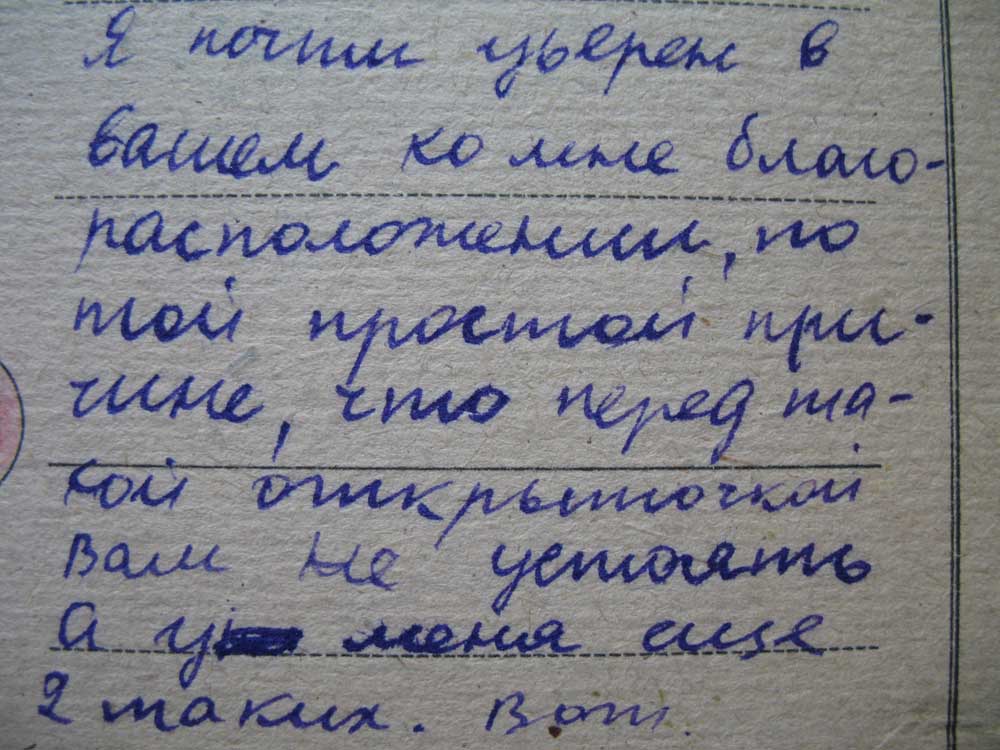 Я почти уверен в
вашем ко мне благо-
расположении, по
той простой при-
чине, что перед та-
кой открыточкой
Вам не устоять
а у меня еще
2 таких. Вот.